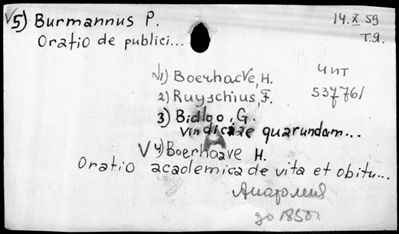 V5) Burmannus P. 14.X.59
Oratio de publici... Т.Я.
√1) Boerhaave, H. Чит
2) Ruyschius, F. 537761
3) Bidloo, G.
Vindiciae quarundam...
A
V 4) Boerhaave H.
Oratio academica de vita et obitu...
Анатомия
до 1850г.